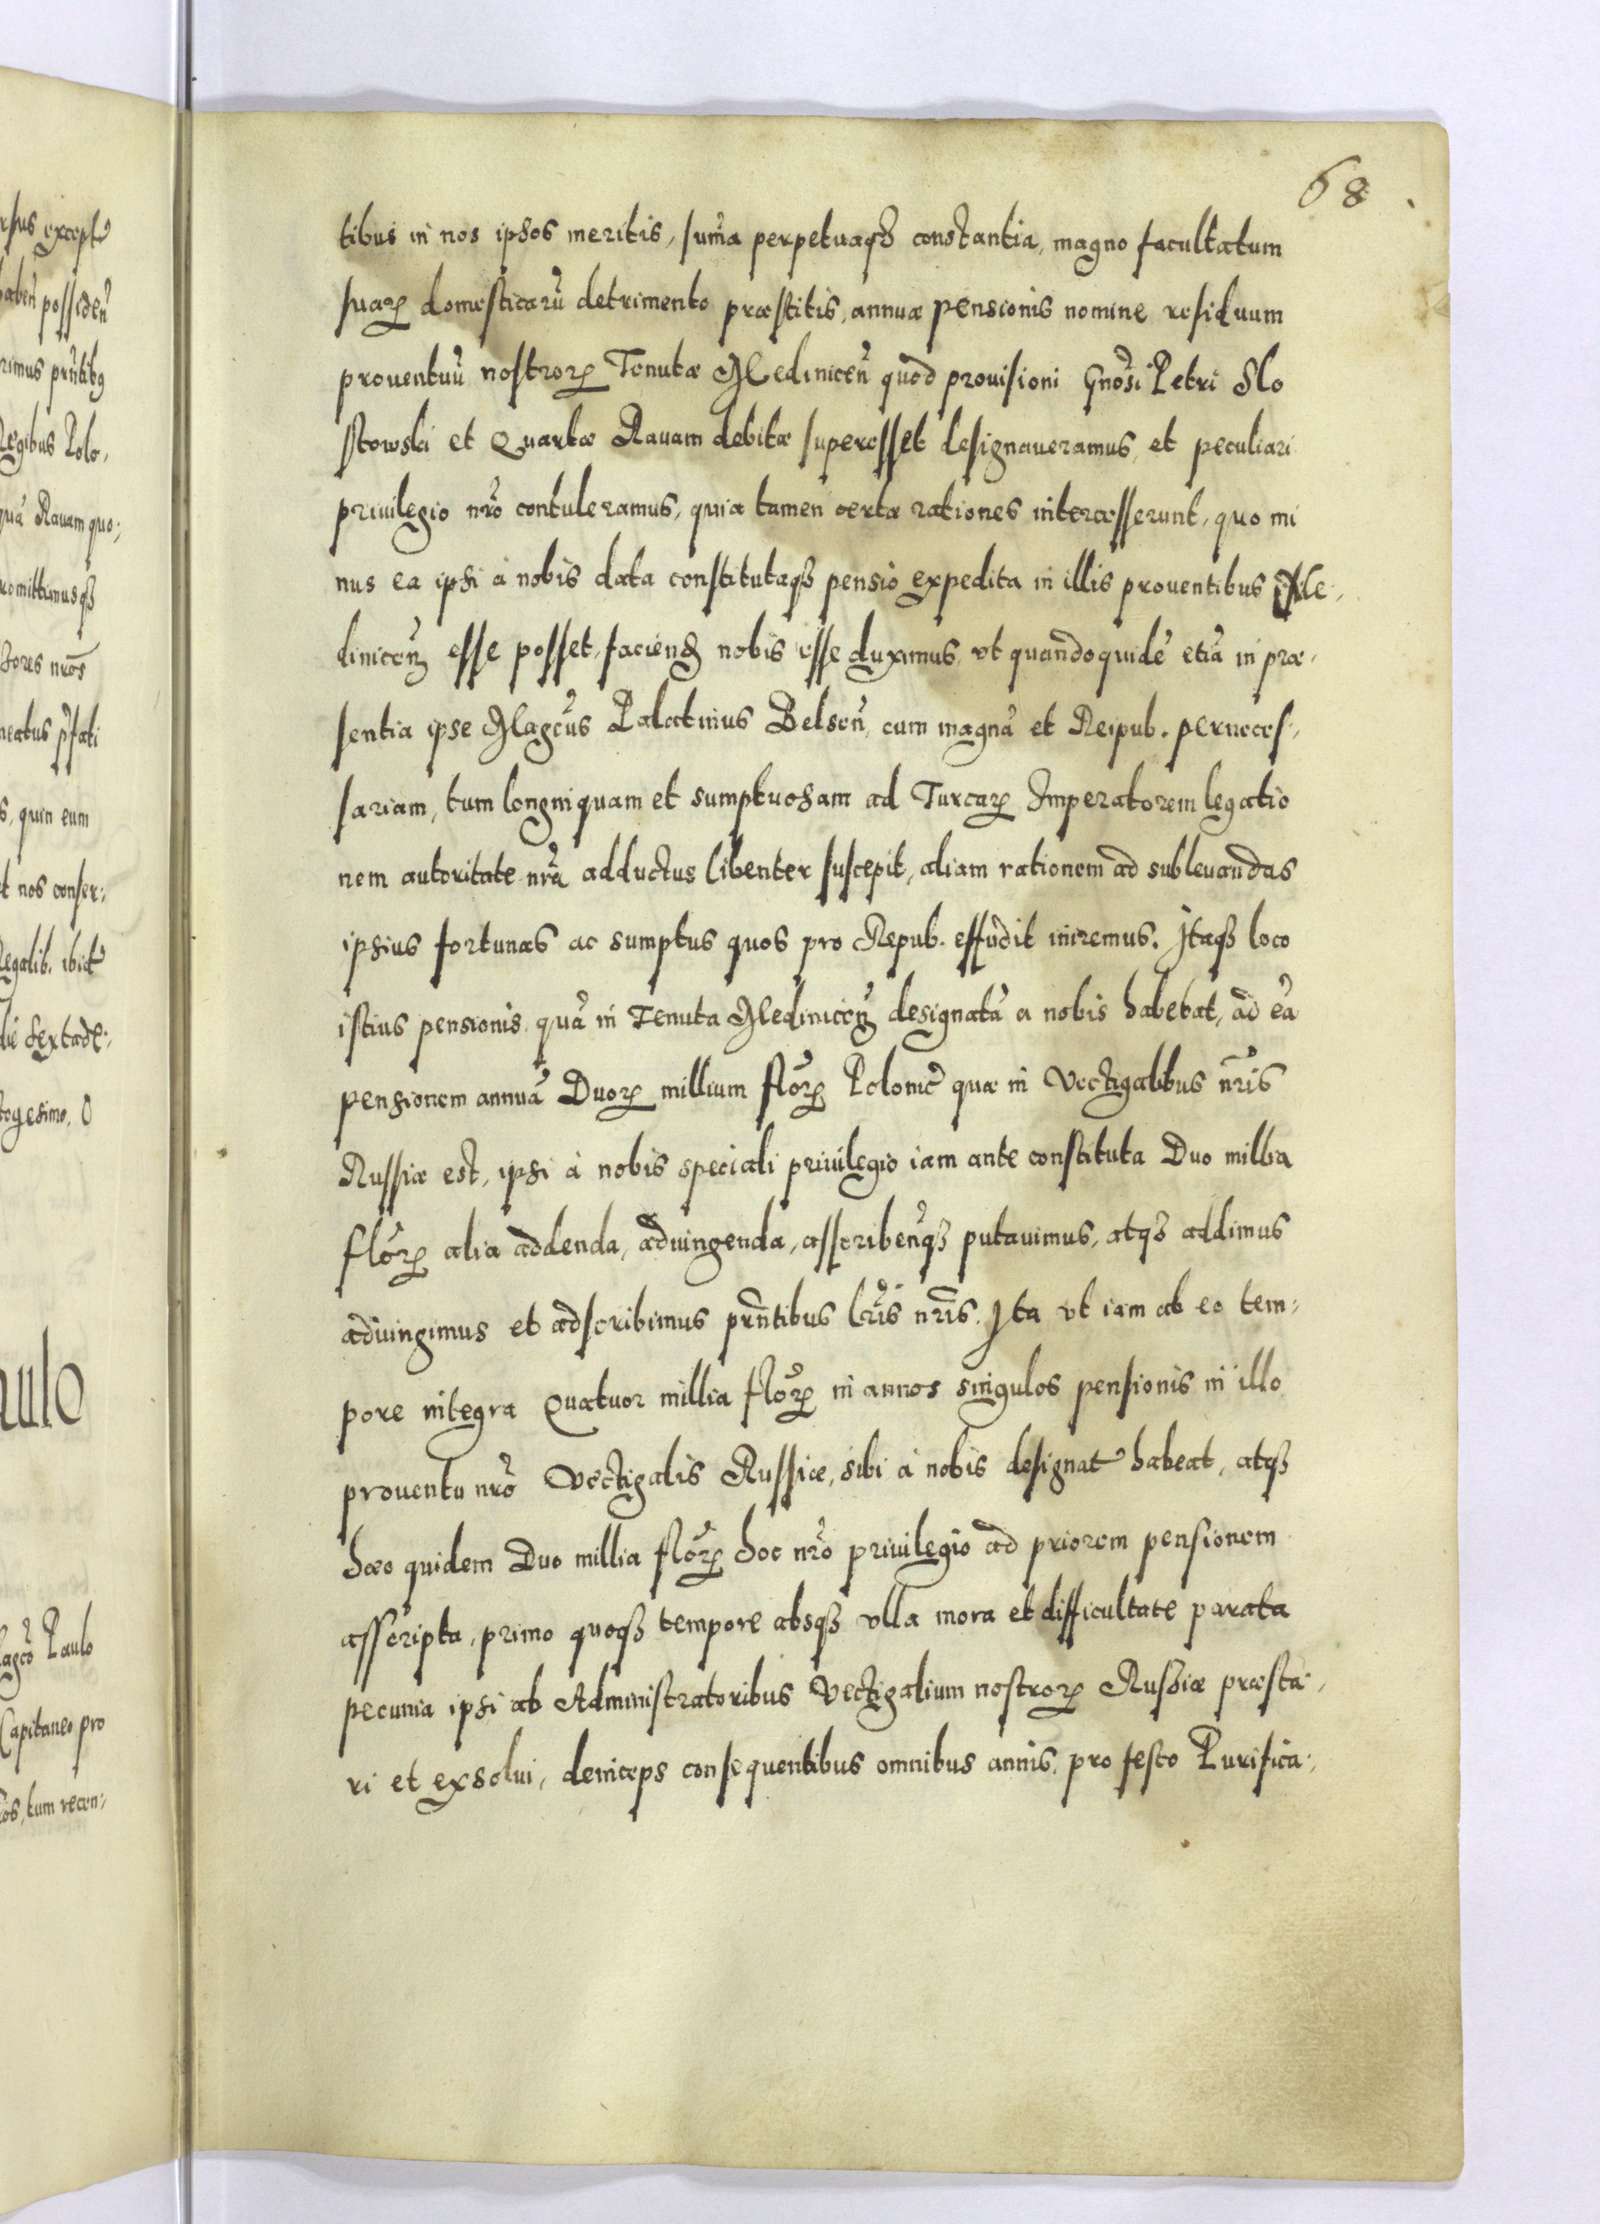 68
tibus in nos ipsos meritis, sum̃a perpetuaqȝ constantia, magno facultatum
suarꝝ domesticarũ detrimento præstitis, annuæ pensionis nomine residuum
prouentuũ nostrorꝝ Tenutæ Mediniceñ quod prouisioni Gnõsi Petri Slo
stowski et Quartæ Rauam debitæ superesset designaueramus, et peculiari
priuilegio nrõ contuleramus, quia tamen certæ rationes intercesserunt, quo mi
nus ea ipsi à nobis data constitutaqȝ pensio expedita in illis prouentibus Me-
diniceñ esse posset, faciend nobis esse duximus, vt quandoquidẽ etiã in præ-
sentia ipse Magcũs Palatinus Belseñ, cum magnã et Reipub. perneces-
sariam, tum longinquam et sumptuosam ad Turcarꝝ Imperatorem legatio
nem autoritate nrã adductus libenter suscepit, aliam rationem ad subleuandas
ipsius fortunas ac sumptus quos pro Repub. effũdit iniremus. Itaqȝ loco
istius pensionis quã in Tenuta Mediniceñ designatã a nobis habebat, ad eã
pensionem annuã Duorꝝ millium flõrꝝ Polonic̃ quæ in Vectigalibus nrĩs
Russiæ est, ipsi à nobis speciali priuilegio iam ante constituta Duo millia
flõrꝝ alia addenda, adiungenda, asscribeñqȝ putauimus, atqȝ addimus
adiungimus et adscribimus prñtibus lrĩs nrĩs. Ita vt iam ab eo tem-
pore integra Quatuor millia flõrꝝ in annos singulos pensionis in illo
prouentu nrõ Vectigalis Russiæ, sibi à nobis designat̃ habeat, atqȝ
hæc quidem Duo millia flõrꝝ hoc nrõ priuilegio ad priorem pensionem
asscripta, primo quoqȝ tempore absqȝ vlla mora et difficultate parata
pecunia ipsi ab Administratoribus Vectigalium nostrorꝝ Russiæ præsta-
ri et exsolui, deinceps consequentibus omnibus annis, pro festo Purifica-